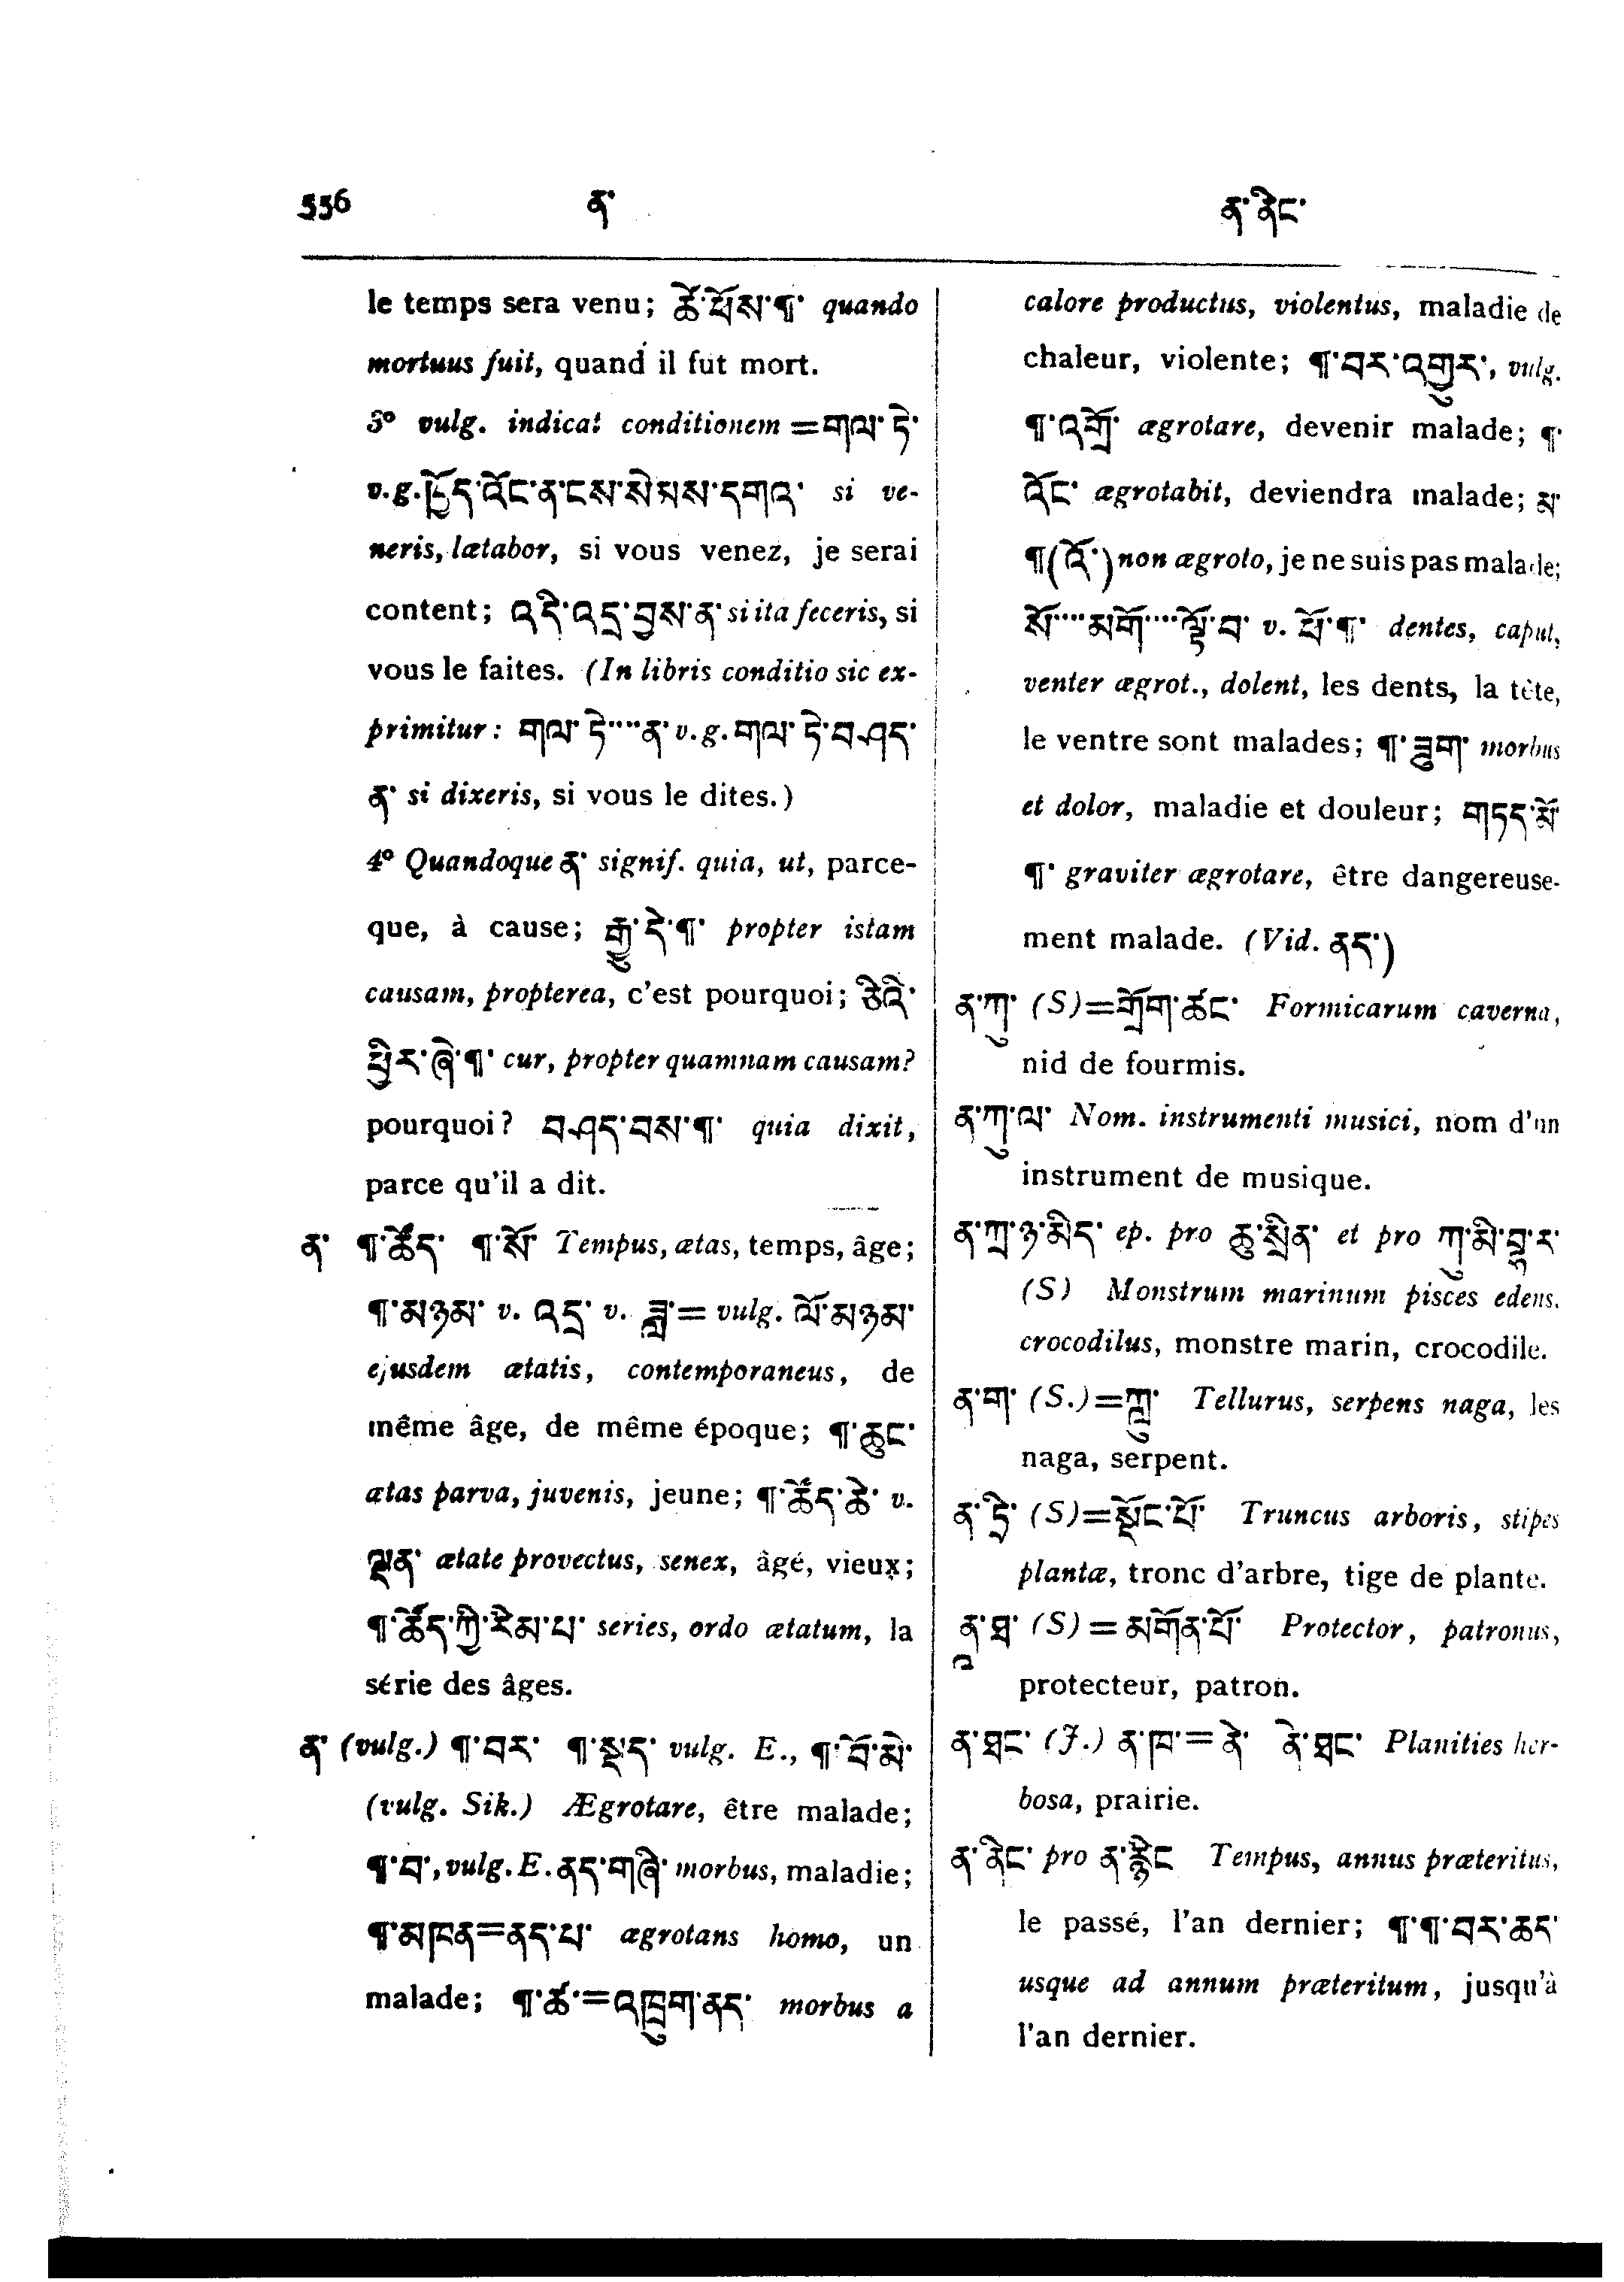 556 ན་ ན་ནིང་
le temps sera venu; ཚེ་ཕོས་¶་ quando
mortuus fuit, quand il fut mort.
3° vulg. indicat conditionem =གལ་ཏེ་
v.g.ཁྱོད་འོང་ན་ངས་སེམས་དགའ་ si ve-
neris, lætabor, si vous venez, je serai
content; འདི་འདྲ་བྱས་ན་ si ita feceris, si
vous le faites. (In libris conditio sic ex-
primitur: གལ་ཏེ་····ན་ v.g. གལ་ཏེ་བཤད་
ན་ si dixeris, si vous le dites.)
4° Quandoque ན་ signif. quia, ut, parce-
que, à cause; རྒྱུ་དེ་¶་ propter istam
causam, propterea, c'est pourquoi; ཅིའི་
ཕྱིར་ཞེ་¶་ cur, propter quamnam causam?
pourquoi? བཤད་བས་¶་ quia dixit,
parce qu'il a dit.
ན་ ¶་ཚོད་ ¶་སོ་ Tempus, ætas, temps, âge;
¶་མཉམ་ v. འདྲ་ v. ཟླ་= vulg. ལོ་མཉམ་
ejusdem ætatis, contemporaneus, de
même âge, de même époque; ¶་ཆུང་
ætas parva, juvenis, jeune; ¶་ཚོད་ཆེ་ v.
ལྡན་ ætate provectus, senex, âgé, vieux;
¶་ཚོད་ཀྱི་རིམ་པ་ series, ordo ætatum, la
série des âges.
ན་ (vulg.) ¶་བར་ ¶་སྡད་ vulg. E., ¶་བོ་མེ་
(vulg. Sik.) Ægrotare, être malade;
¶་བ་, vulg. E. ནད་གཞི་ morbus, maladie;
¶་མཁན=ནད་པ་ ægrotans homo, un
malade; ¶་ཚ་=འཁྲུག་ནད་ morbus a
calore productus, violentus, maladie de
chaleur, violente; ¶་བར་འགྱུར་, vulg.
¶་འགྲོ་ ægrotare, devenir malade; ¶་
འོང་ ægrotabit, deviendra malade; མ་
¶(འོ་) non ægroto, je ne suis pas malade;
སོ་····མགོ་····ལྟོ་བ་ v. ཕོ་¶་ dentes, caput,
venter ægrot., dolent, les dents, la tête,
le ventre sont malades; ¶་ཟུག་ morbus
et dolor, maladie et douleur; གཏད་མོ་
¶་ graviter ægrotare, être dangereuse-
ment malade. (Vid. ནད་)
ན་ཀུ་ (S)=གྲོག་ཚང་ Formicarum caverna,
nid de fourmis.
ན་ཀུ་ལ་ Nom. instrumenti musici, nom d'un
instrument de musique.
ན་ཀྲ་ཉ་མིད་ ep. pro ཆུ་སྲིན་ et pro ཀུ་མི་བྷི་ར་
(S) Monstrum marinum pisces edens.
crocodilus, monstre marin, crocodile.
ན་ག་ (S.)=ཀླུ་ Tellurus, serpens naga, les
naga, serpent.
ན་ཌི་ (S)=སྡོང་པོ་ Truncus arboris, stipes
plantæ, tronc d'arbre, tige de plante.
ནཱ་ཐ་ (S) = མགོན་པོ་ Protector, patronus,
protecteur, patron.
ན་ཐང་ (J.) ན་ཁ་= ནེ་ ནེ་ཐང་ Planities her-
bosa, prairie.
ན་ནིང་ pro ན་རྙིང Tempus, annus præteritus,
le passé, l'an dernier; ¶་¶་བར་ཆད་
usque ad annum præteritum, jusqu'à
l'an dernier.